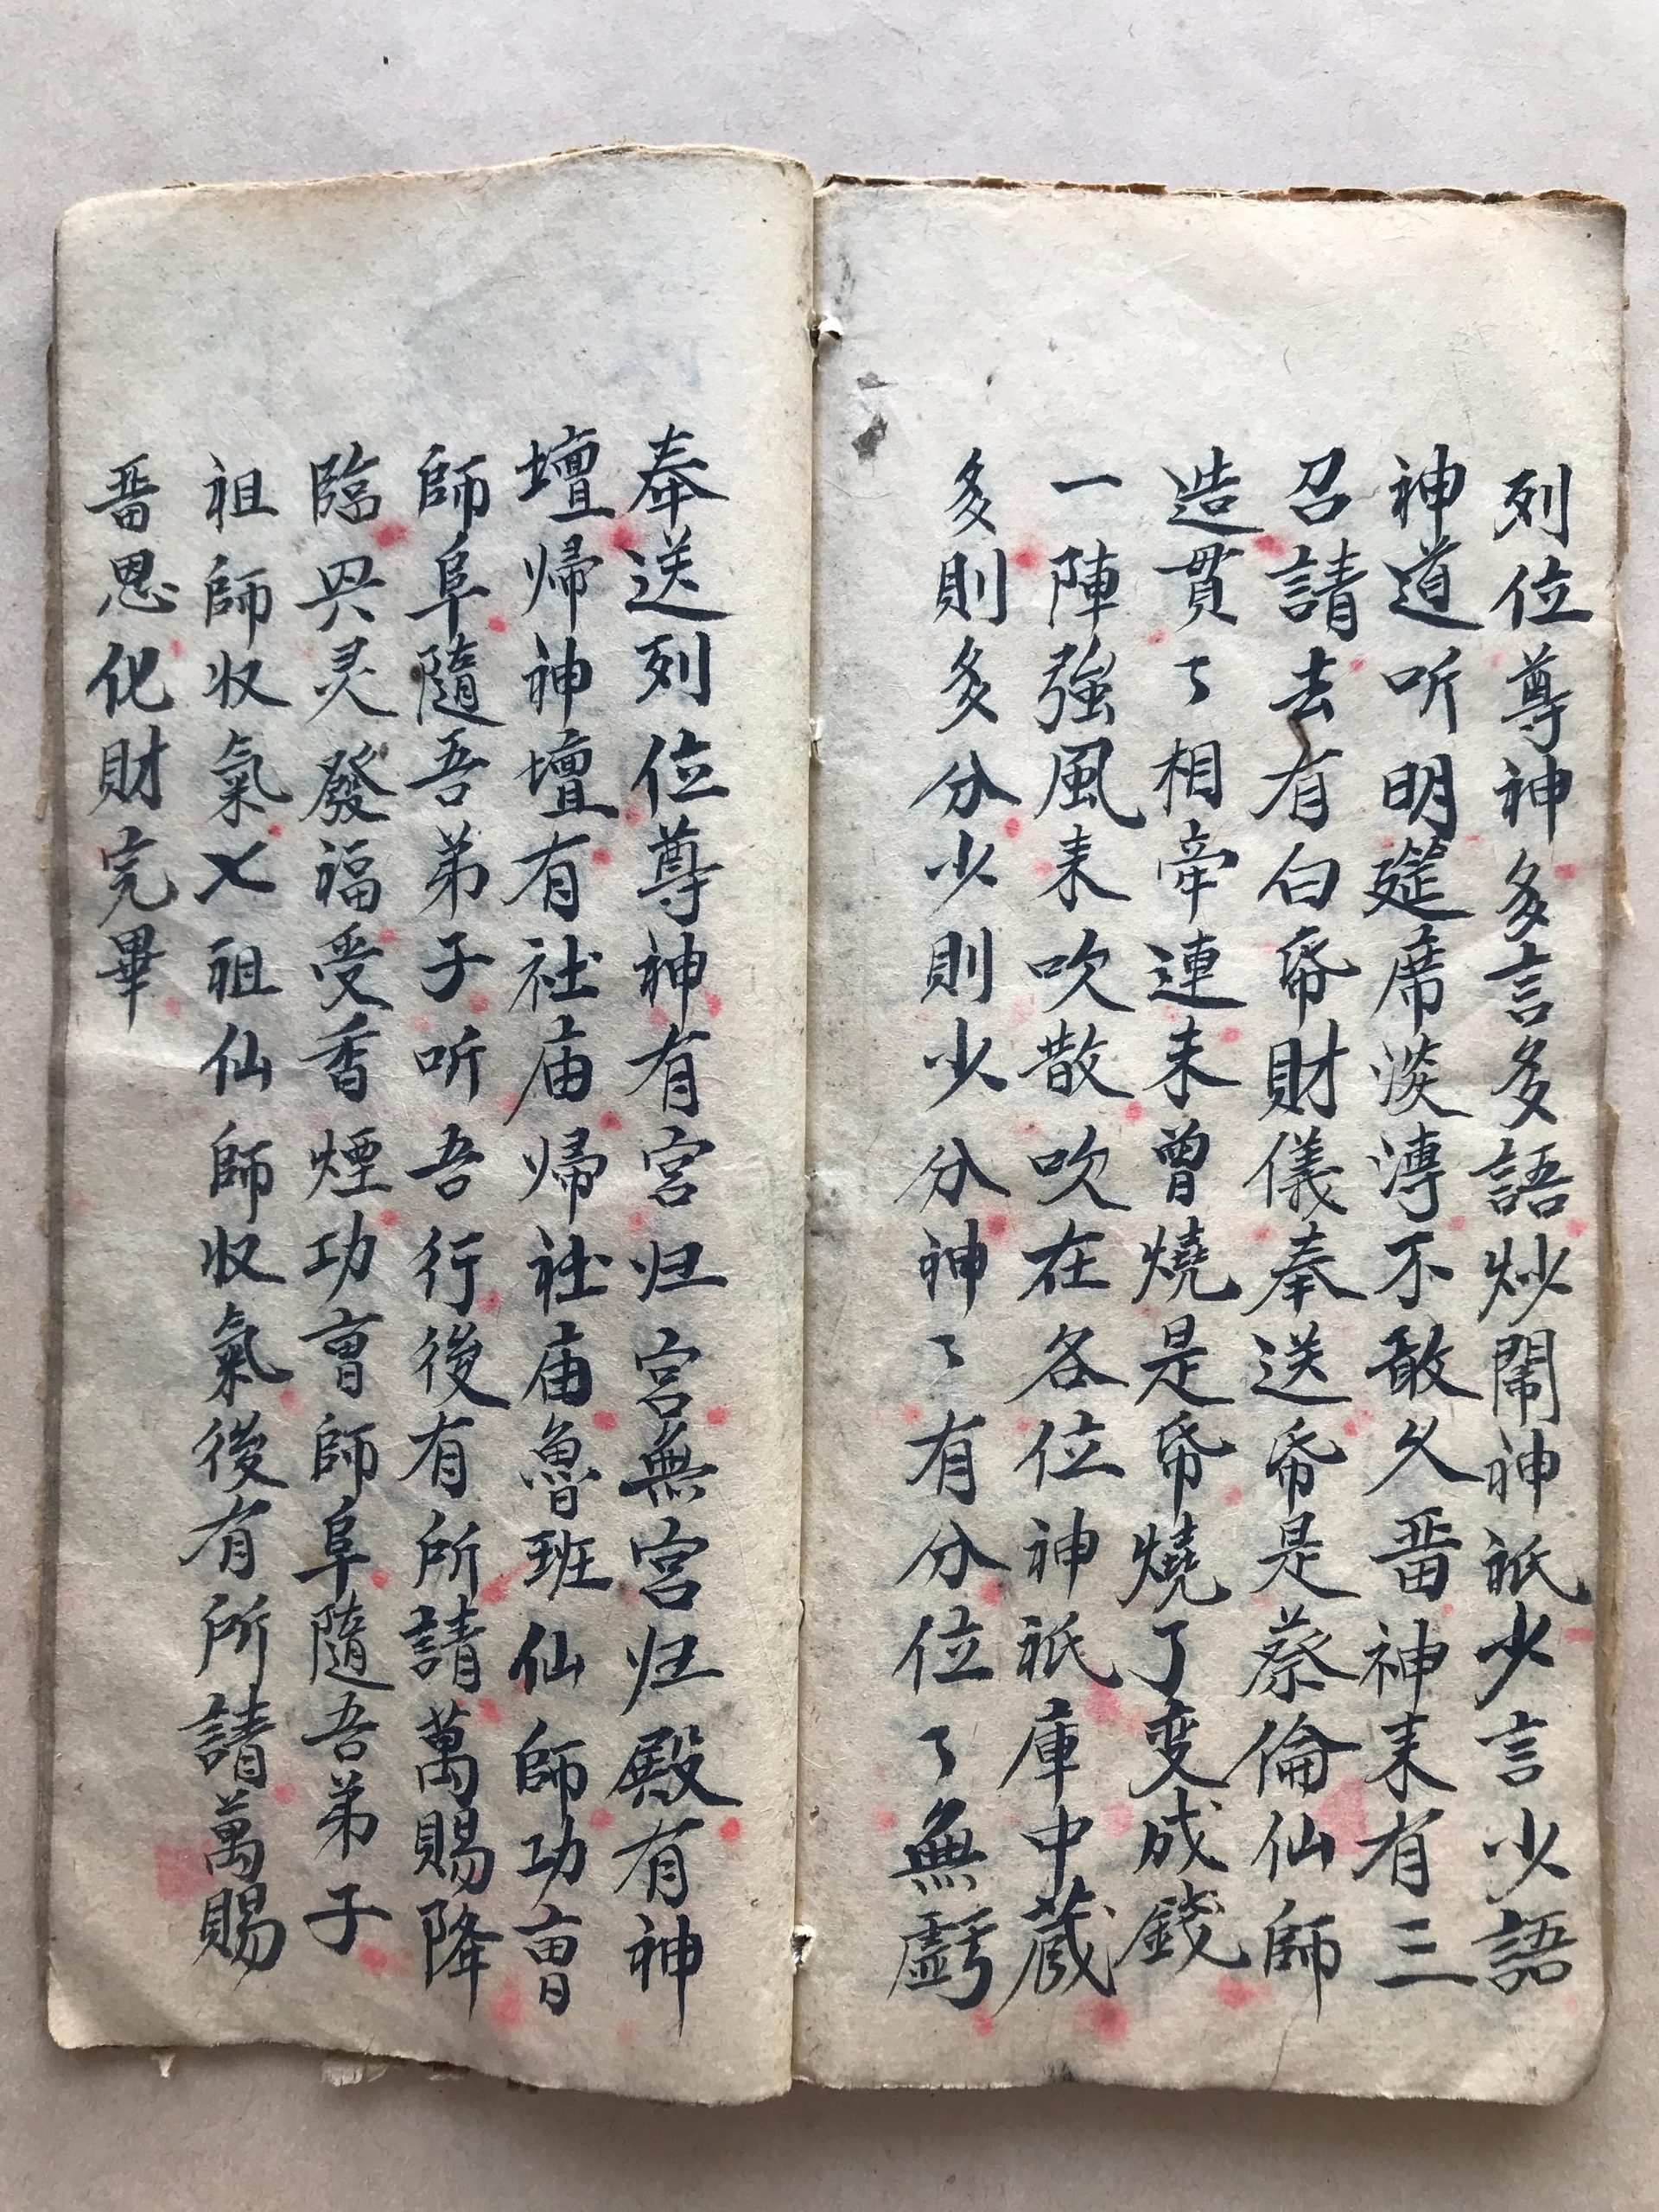 列位尊神多言多語炒鬧神祇少言少語
神道听明筵席淡溥不敢久畱神来有三
召請去有白帋財儀奉送帋是蔡倫仙師
造貫了相牵連未曾燒是帋燒了变成錢
一陣強風来吹散吹在各位神祇庫中蔵
多則多分少則少分神了有分位了無虧
奉送列位尊神有宮归宮無宮归殿有神
壇帰神壇有社庙帰社庙魯班仙師功曺
師阜隨吾弟子听吾行後有所請萬賜降
臨灵發福受香煙功曺師阜隨吾弟子
祖師収氣祖仙師収氣後有所請萬賜
畱恩化財完畢